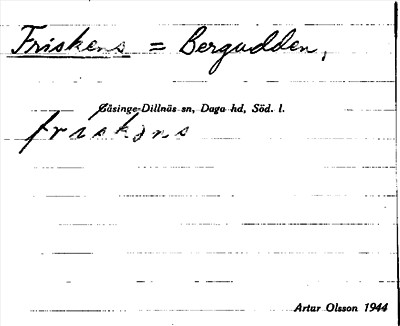 Friskens = Bergudden,
Gåsinge-Dillnäs sn, Daga hd, Söd. l.
friskəns
Artur Olsson 1944